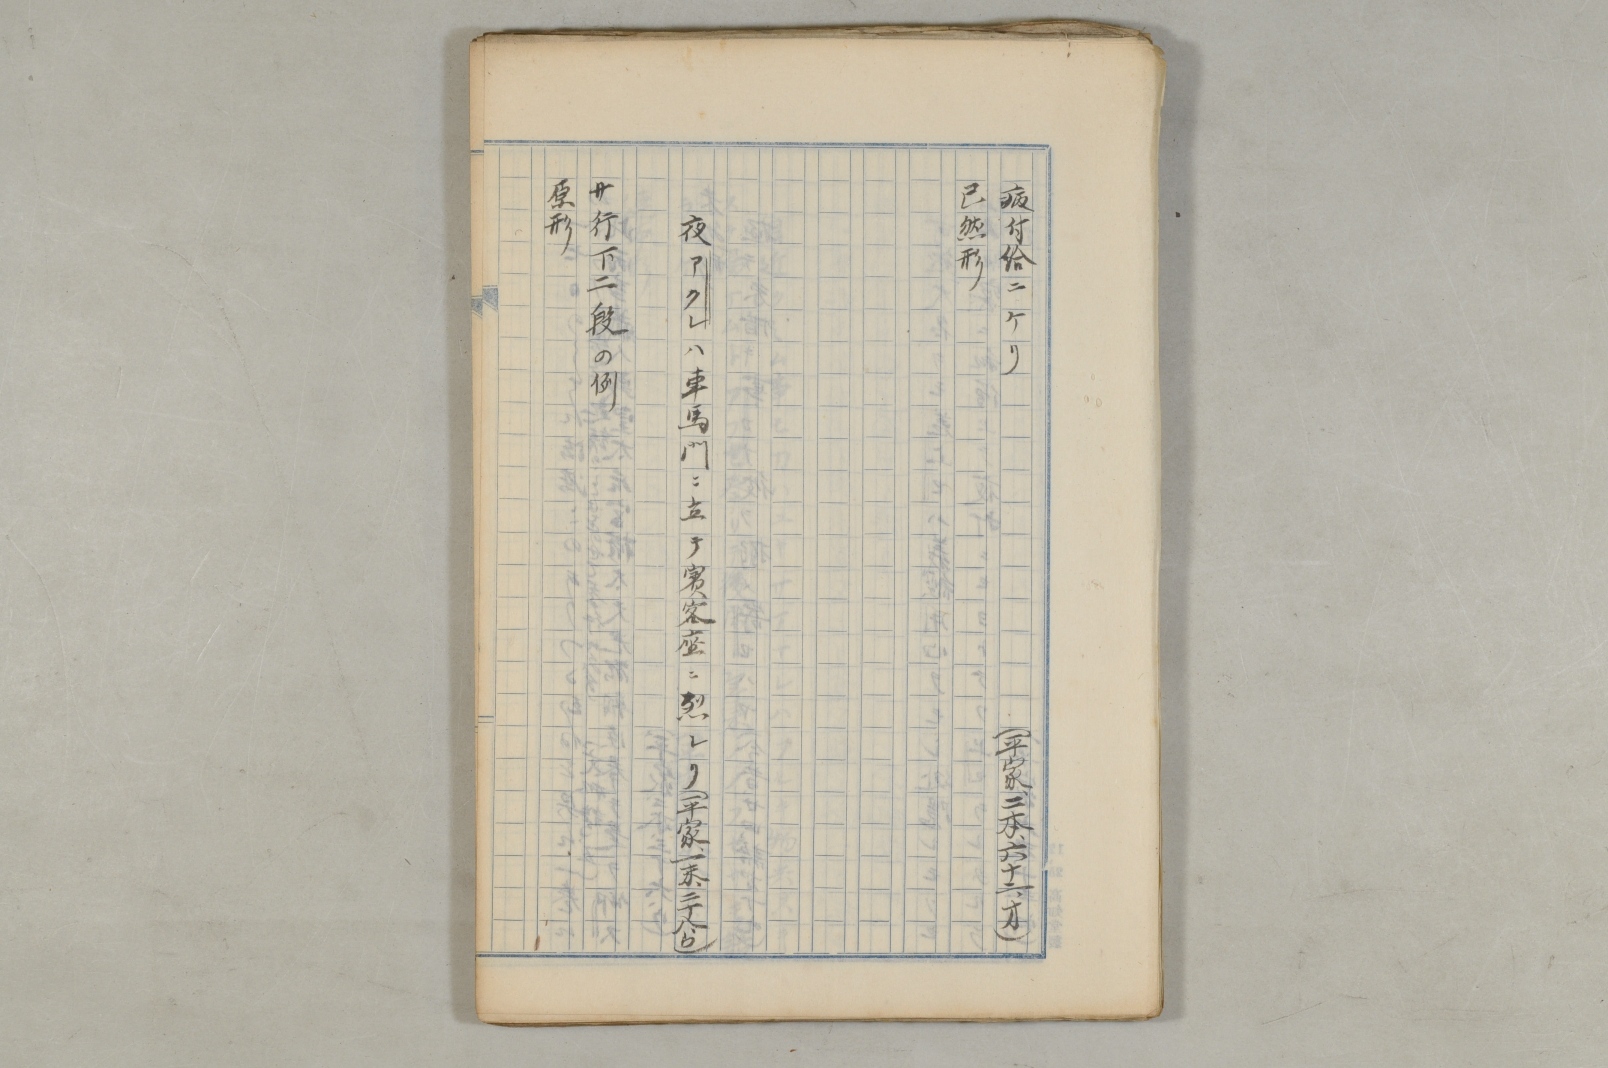 病付給ニケリ
(平家、二本、六十六オ)
已然形
夜アクレハ車馬門ニ立チ賓客座ニ烈レリ(平家、一末、三十八ウ)
サ行下二段の例
原形